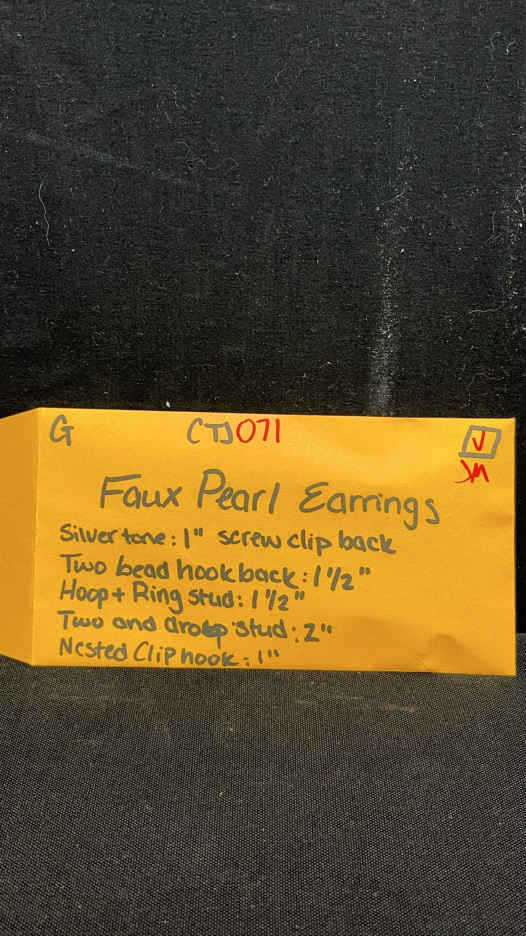 G CTJ071 V
JM
Faux Pearl Earrings
Silvertone: 1" screw clip back
Two bead hook back: 1 1/2"
Hoop + Ring stud: 1 1/2"
Two and drop stud: 2"
Nested Clip hook: 1"